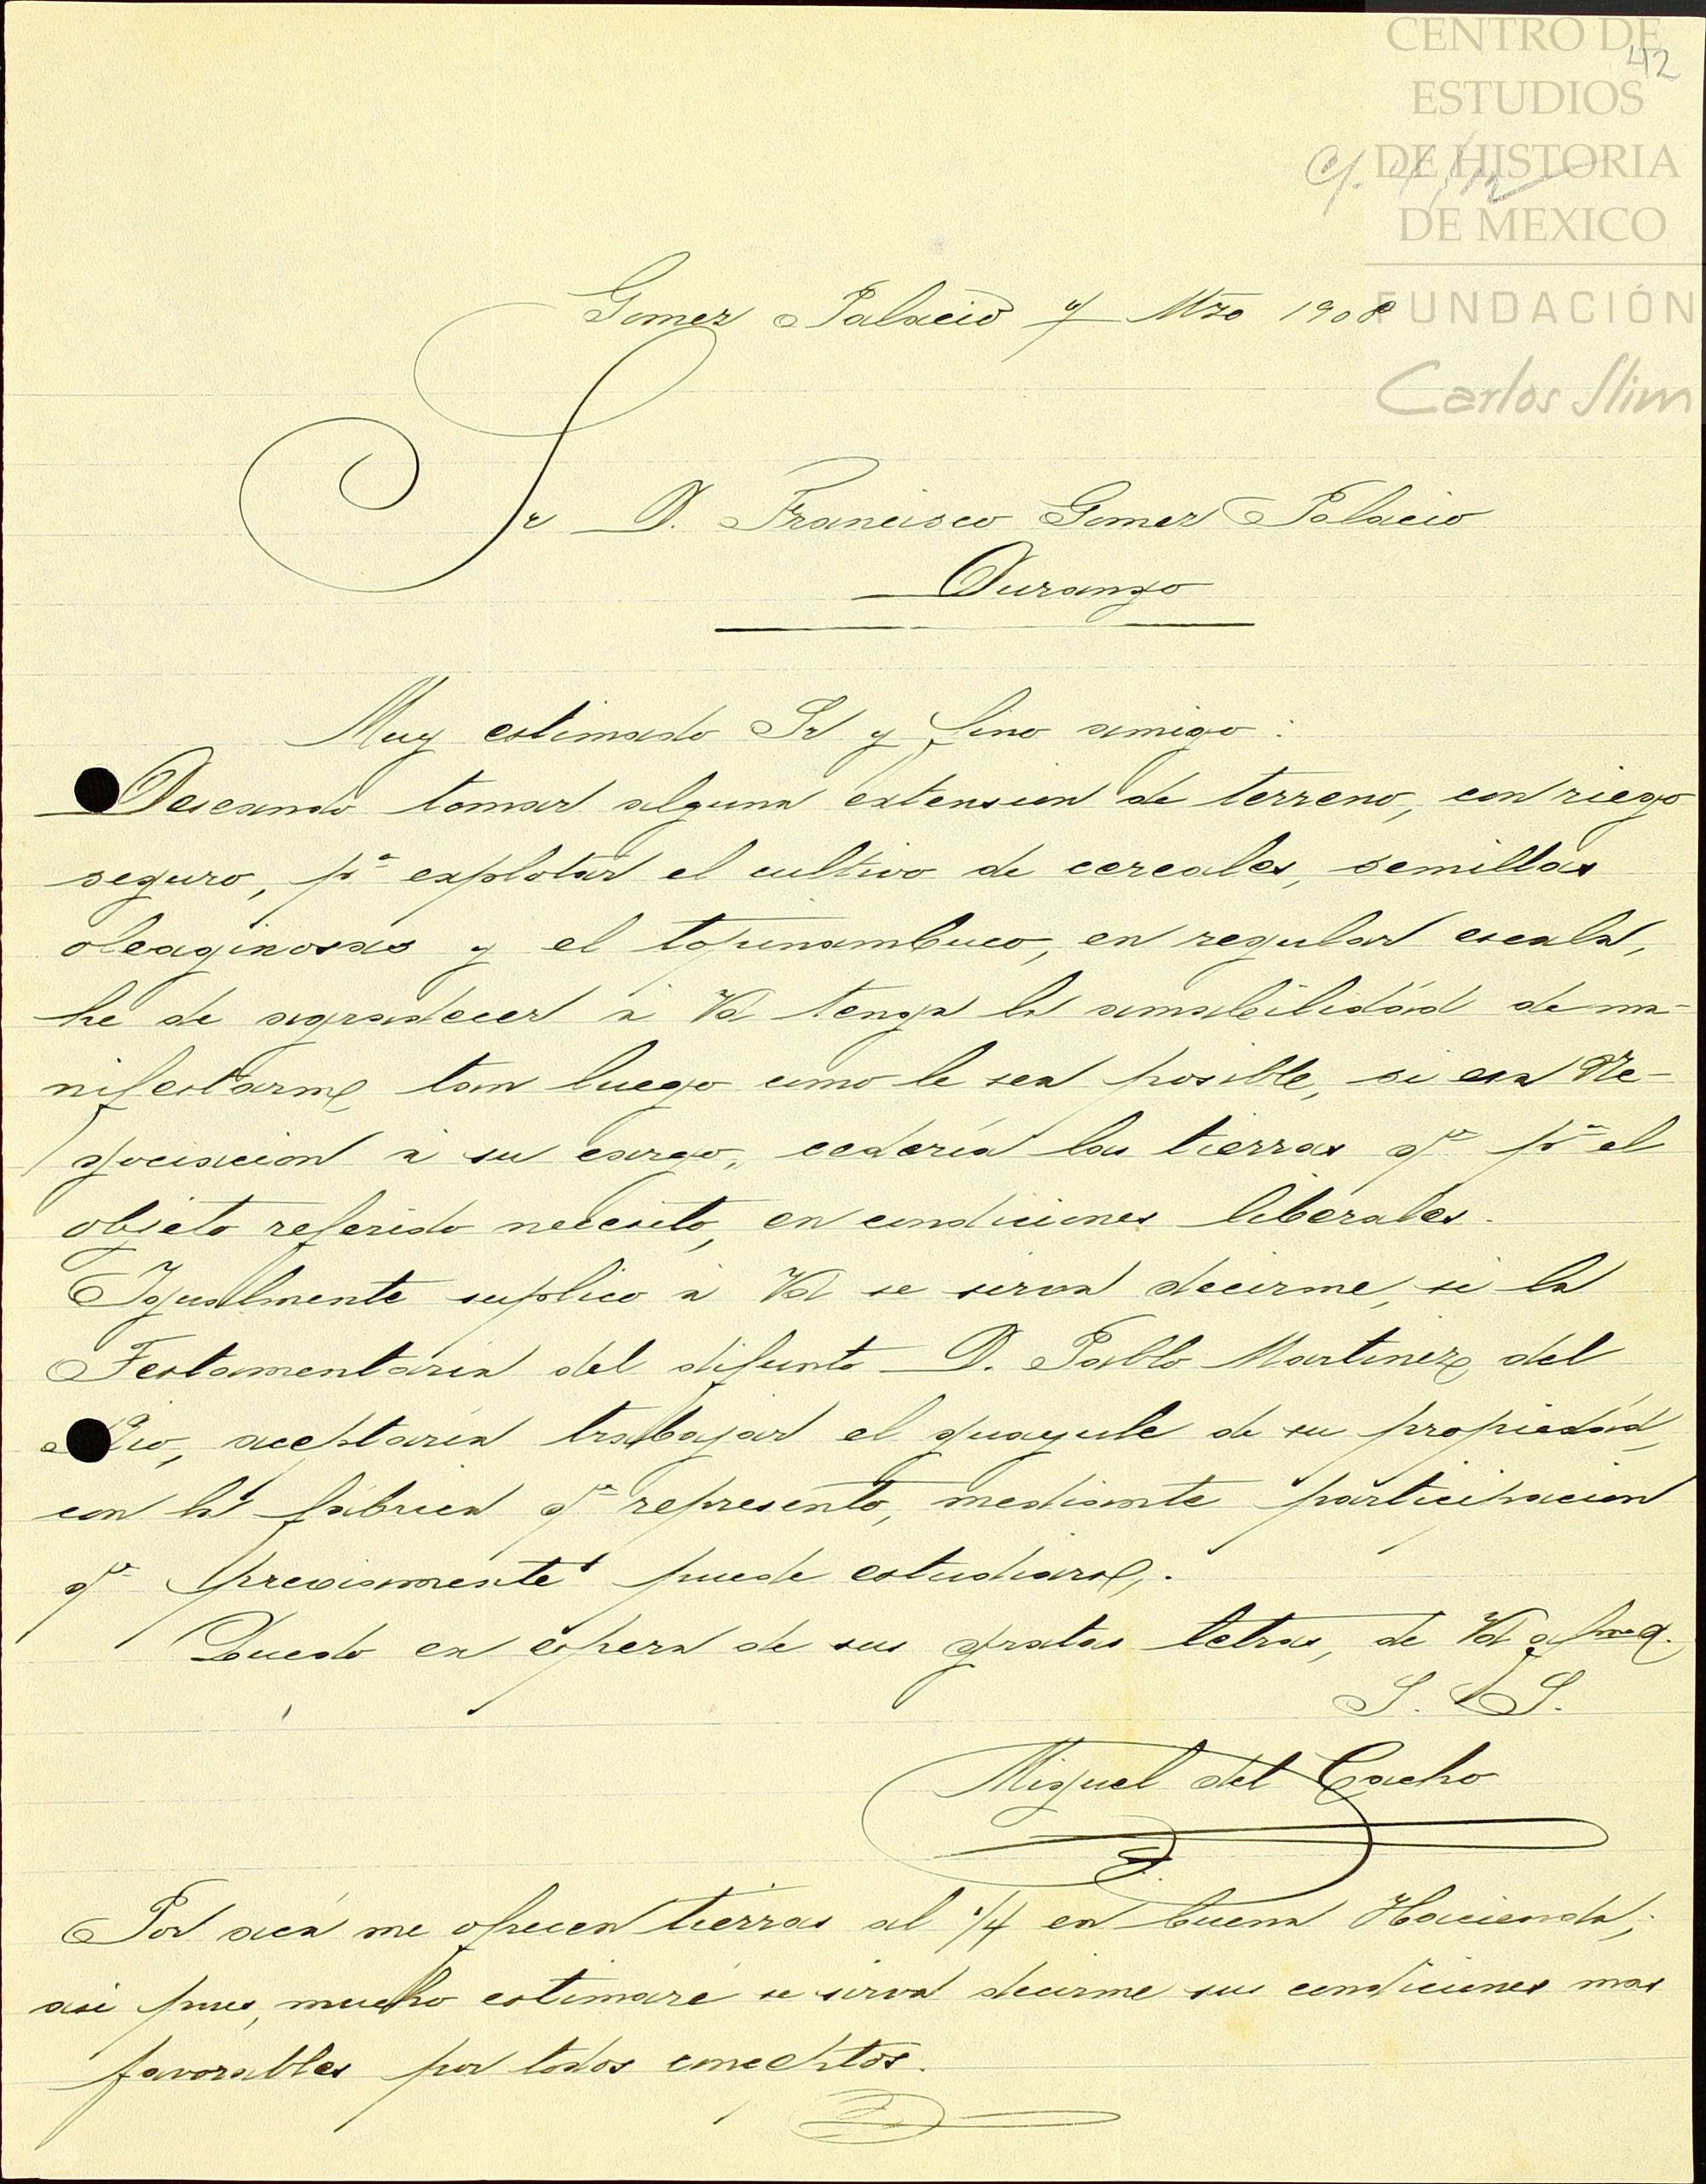 42
CENTRO DE
ESTUDIOS
DE HISTORIA
DE MEXICO
FUNDACIÓN
Carlos Slim
Gomez Palacio 4/ Mzo 1908
Sr D. Francisco Gomez Palacio
Durango
Muy estimado Sr y fino amigo:
Deseando tomar alguna extension de terreno, con riego
seguro, pª explotar el cultivo de cereales, semillas
oleaginosas y el topinambuco, en regular escala,
he de agradecer á Vd tenga la amabilidád de ma-
nifestarme tan luego como le sea posible, si esa Ne-
gociacion á su cargo, cedería las tierras qe pª el
objeto referido necesito, en condiciones liberales.
Igualmente suplico á Vd se sirva decirme, si la
Testamentaria del difunto D. Pablo Martinez del
Rio, aceptaria trabajar el guayule de su propiedád,
con la fábrica qe represento, mediante participacion
qe previamente puede estudiarse.
Quedo en espera de sus gratas letras, de Vd afmo
S. S.
Miguel del Cacho
Por acá me ofrecen tierras al 1/4 en buena Hacienda;
asi pues, mucho estimaré se sirva decirme sus condiciones mas
favorables por todos conceptos.